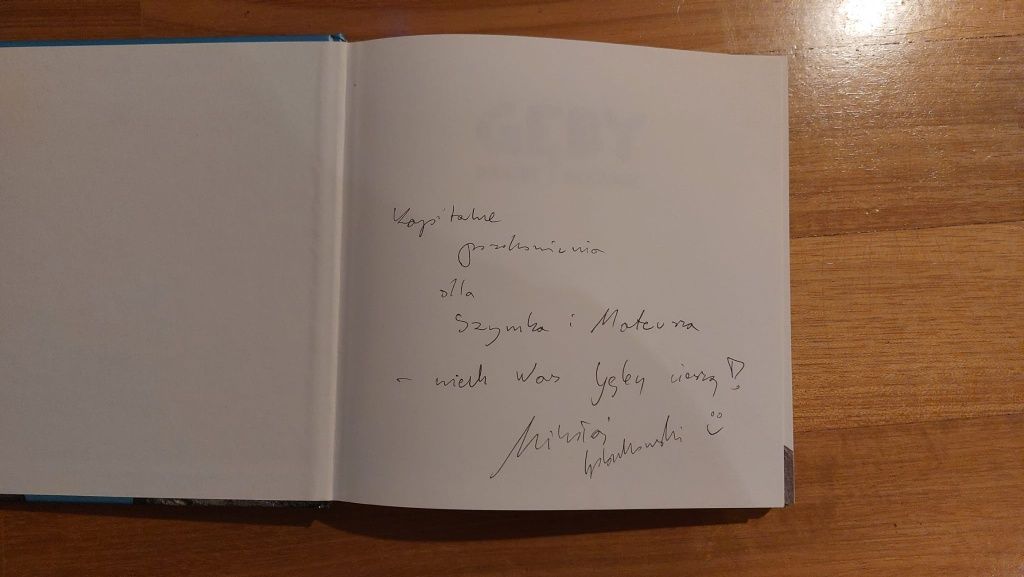 Kapitalne
pozdrowienia
dla
Szymka i Mateusza
– niech Was Gęby cieszą!
Mikołaj
Golachowski